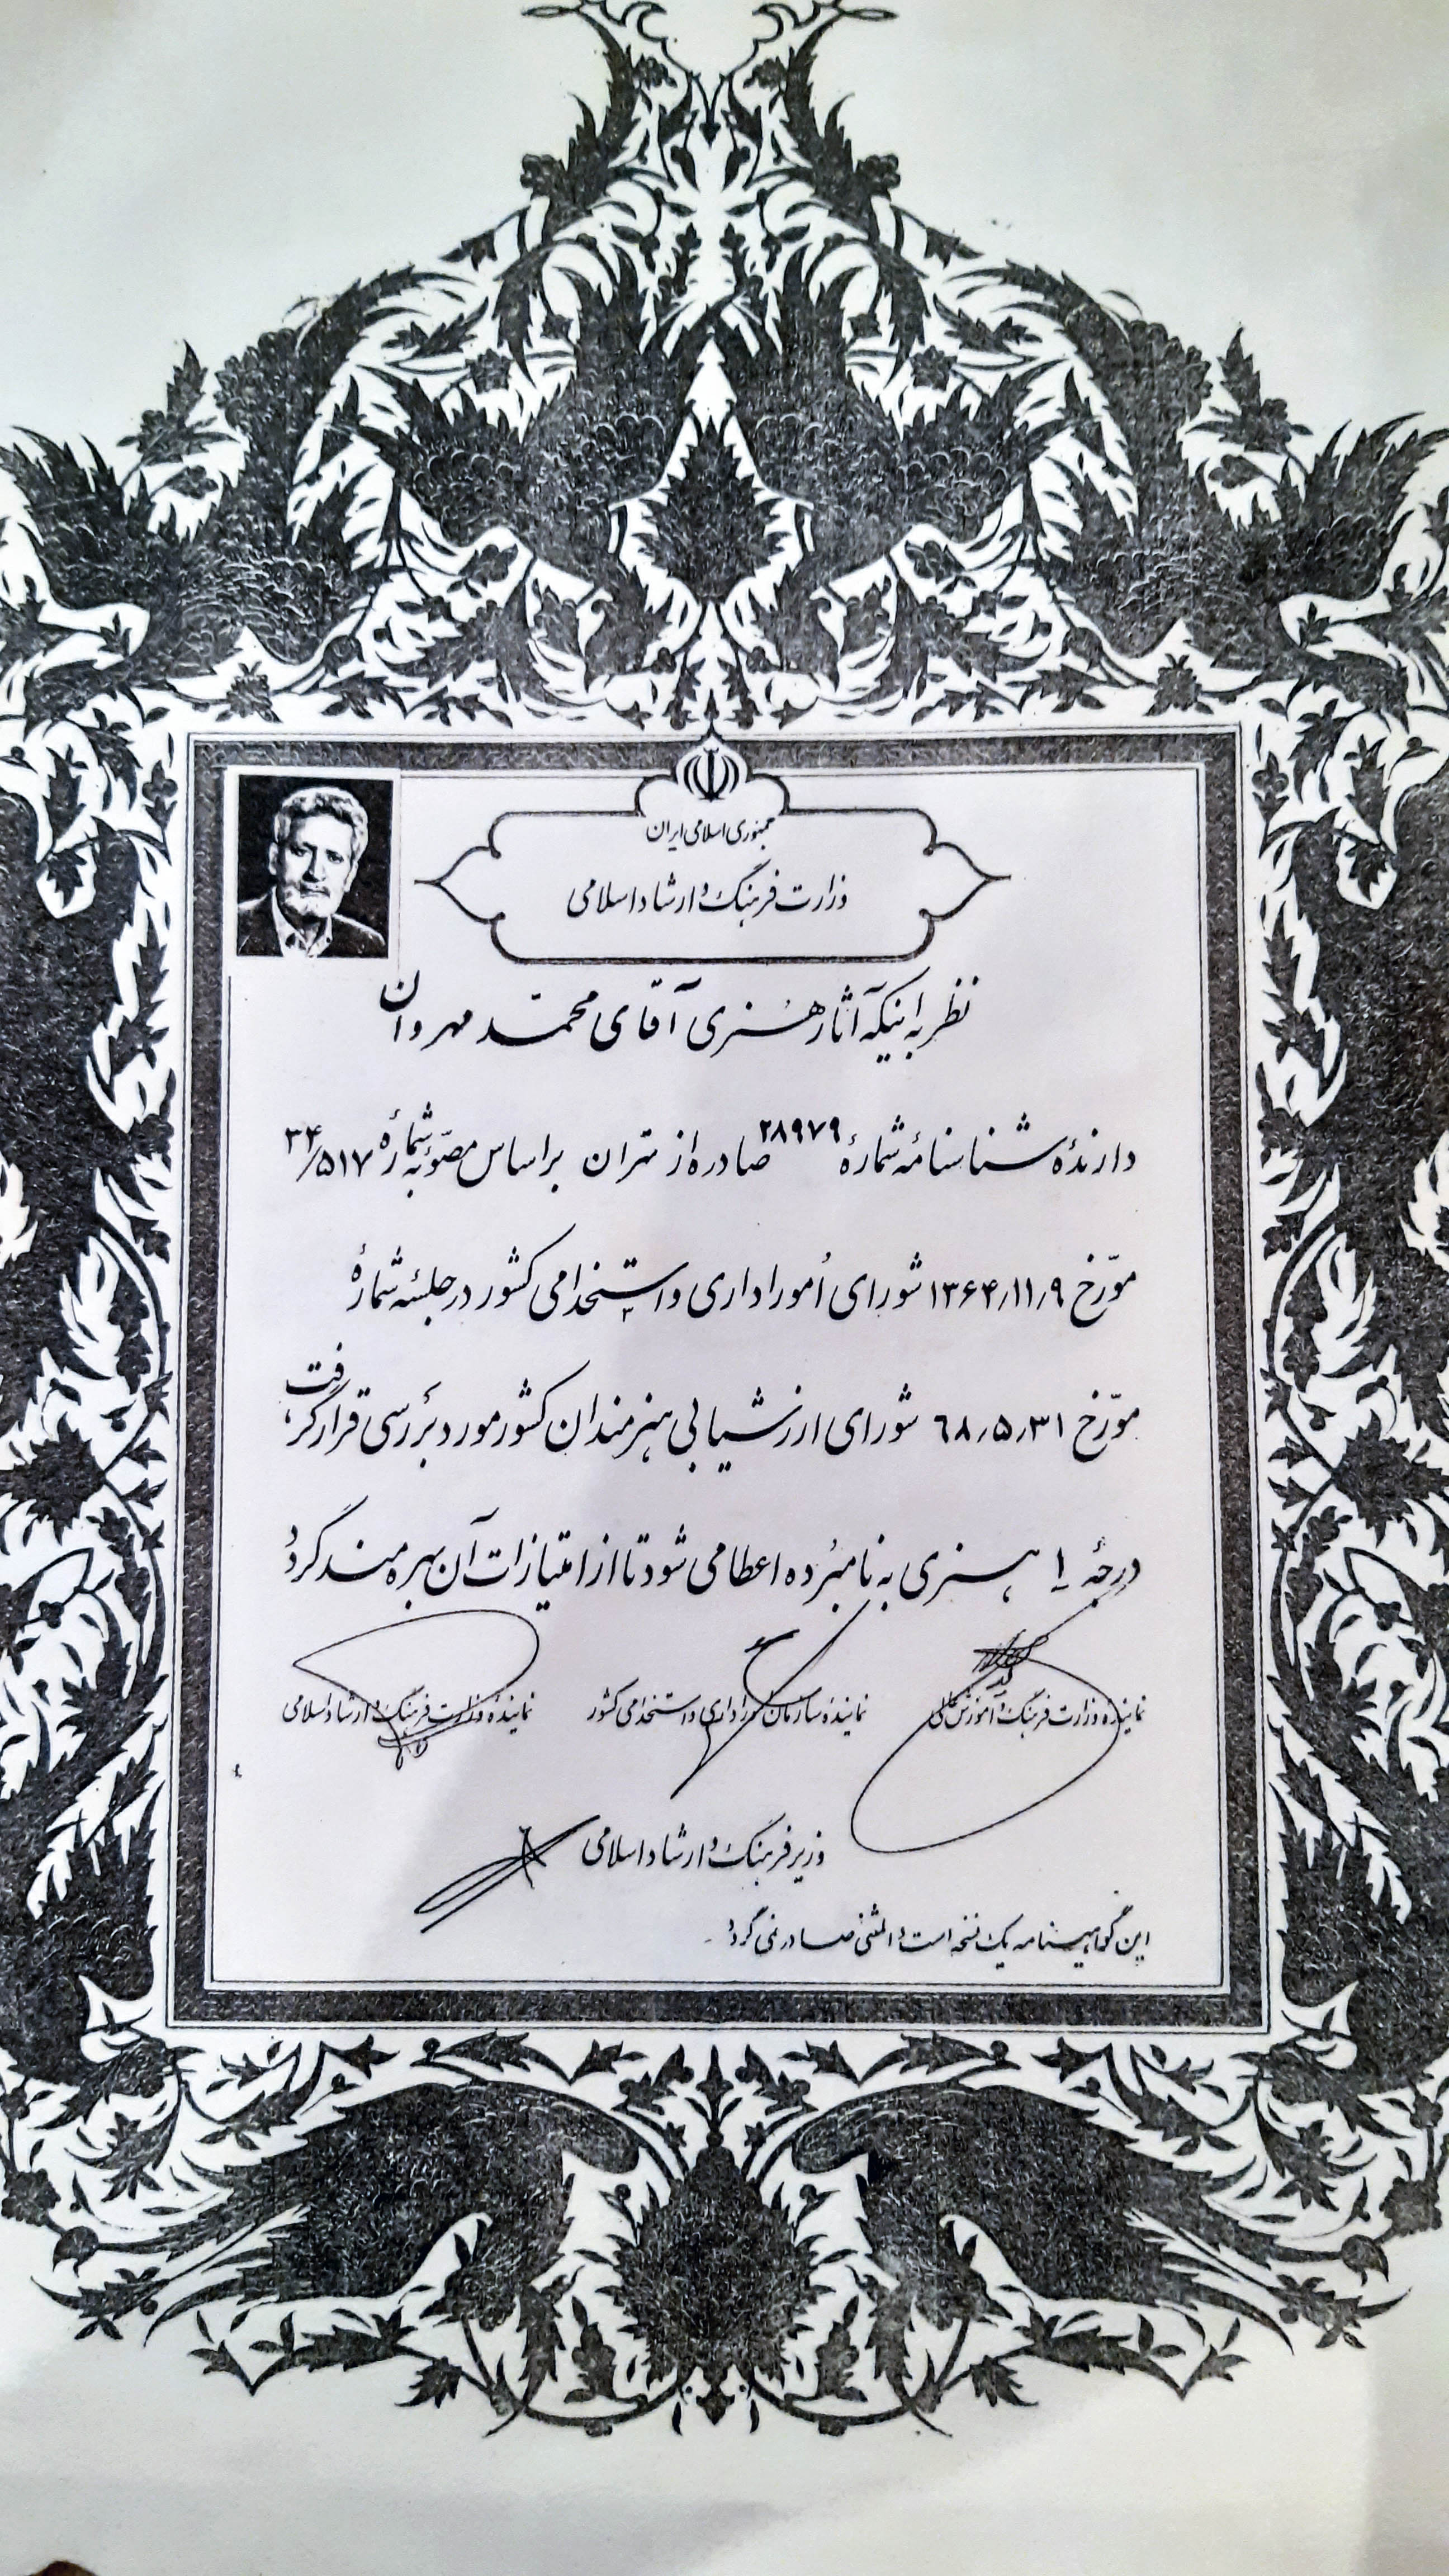 جمهوری اسلامی ایران
وزارت فرهنگ و ارشاد اسلامی
نظر به اینکه آثار هنری آقای محمّد مهروان
دارندهٔ شناسنامهٔ شمارهٔ ۲۸۹۷۹ صادره از تهران براساس مصوّبهٔ شمارهٔ ۳۴/۵۱۷
مورّخ ۱۳۶۴/۱۱/۹ شورای اُمور اداری و استخدامی کشور در جلسهٔ شمارهٔ
مورّخ ۶۸/۵/۳۱ شورای ارزشیابی هنرمندان کشور مورد بررسی قرار گرفت،
درجهٔ ۱ هنری به نامبُرده اعطا می شود تا از امتیازات آن بهره مند گردد
نمایندهٔ وزارت فرهنگ و آموزش عالی نمایندهٔ سازمان امور اداری و استخدامی کشور نمایندهٔ وزارت فرهنگ و ارشاد اسلامی
وزیر فرهنگ و ارشاد اسلامی
این گواهینامه یک نسخه است و المثنی صادر نمی گردد.